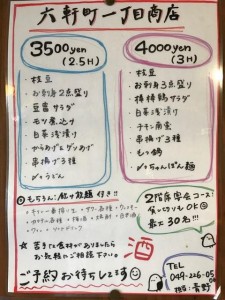 六軒町一丁目商店
3500yen
(2.5H)
・枝豆
・お刺身2点盛り
・豆腐サラダ
・モツ煮込み
・白菜浅漬け
・からあげ&
・串揚げ3種
4000yen
(3H)
・枝豆
・お刺身3点盛り
・棒棒鶏サラダ
・白菜浅漬け
・チキン南蛮
・串揚げ3種
・もつ鍋
・〆ちゃんぽん麺
・〆うどん
もちろん!飲み放題付き!!
☆ 苦手な食材がありましたら
お気軽にご相談下さい。
ご予約お待ちしてます
酒
2階席宴会コース!
貸し切りもOK
最大30名!!!
TEL
049-226-05
担当:青野